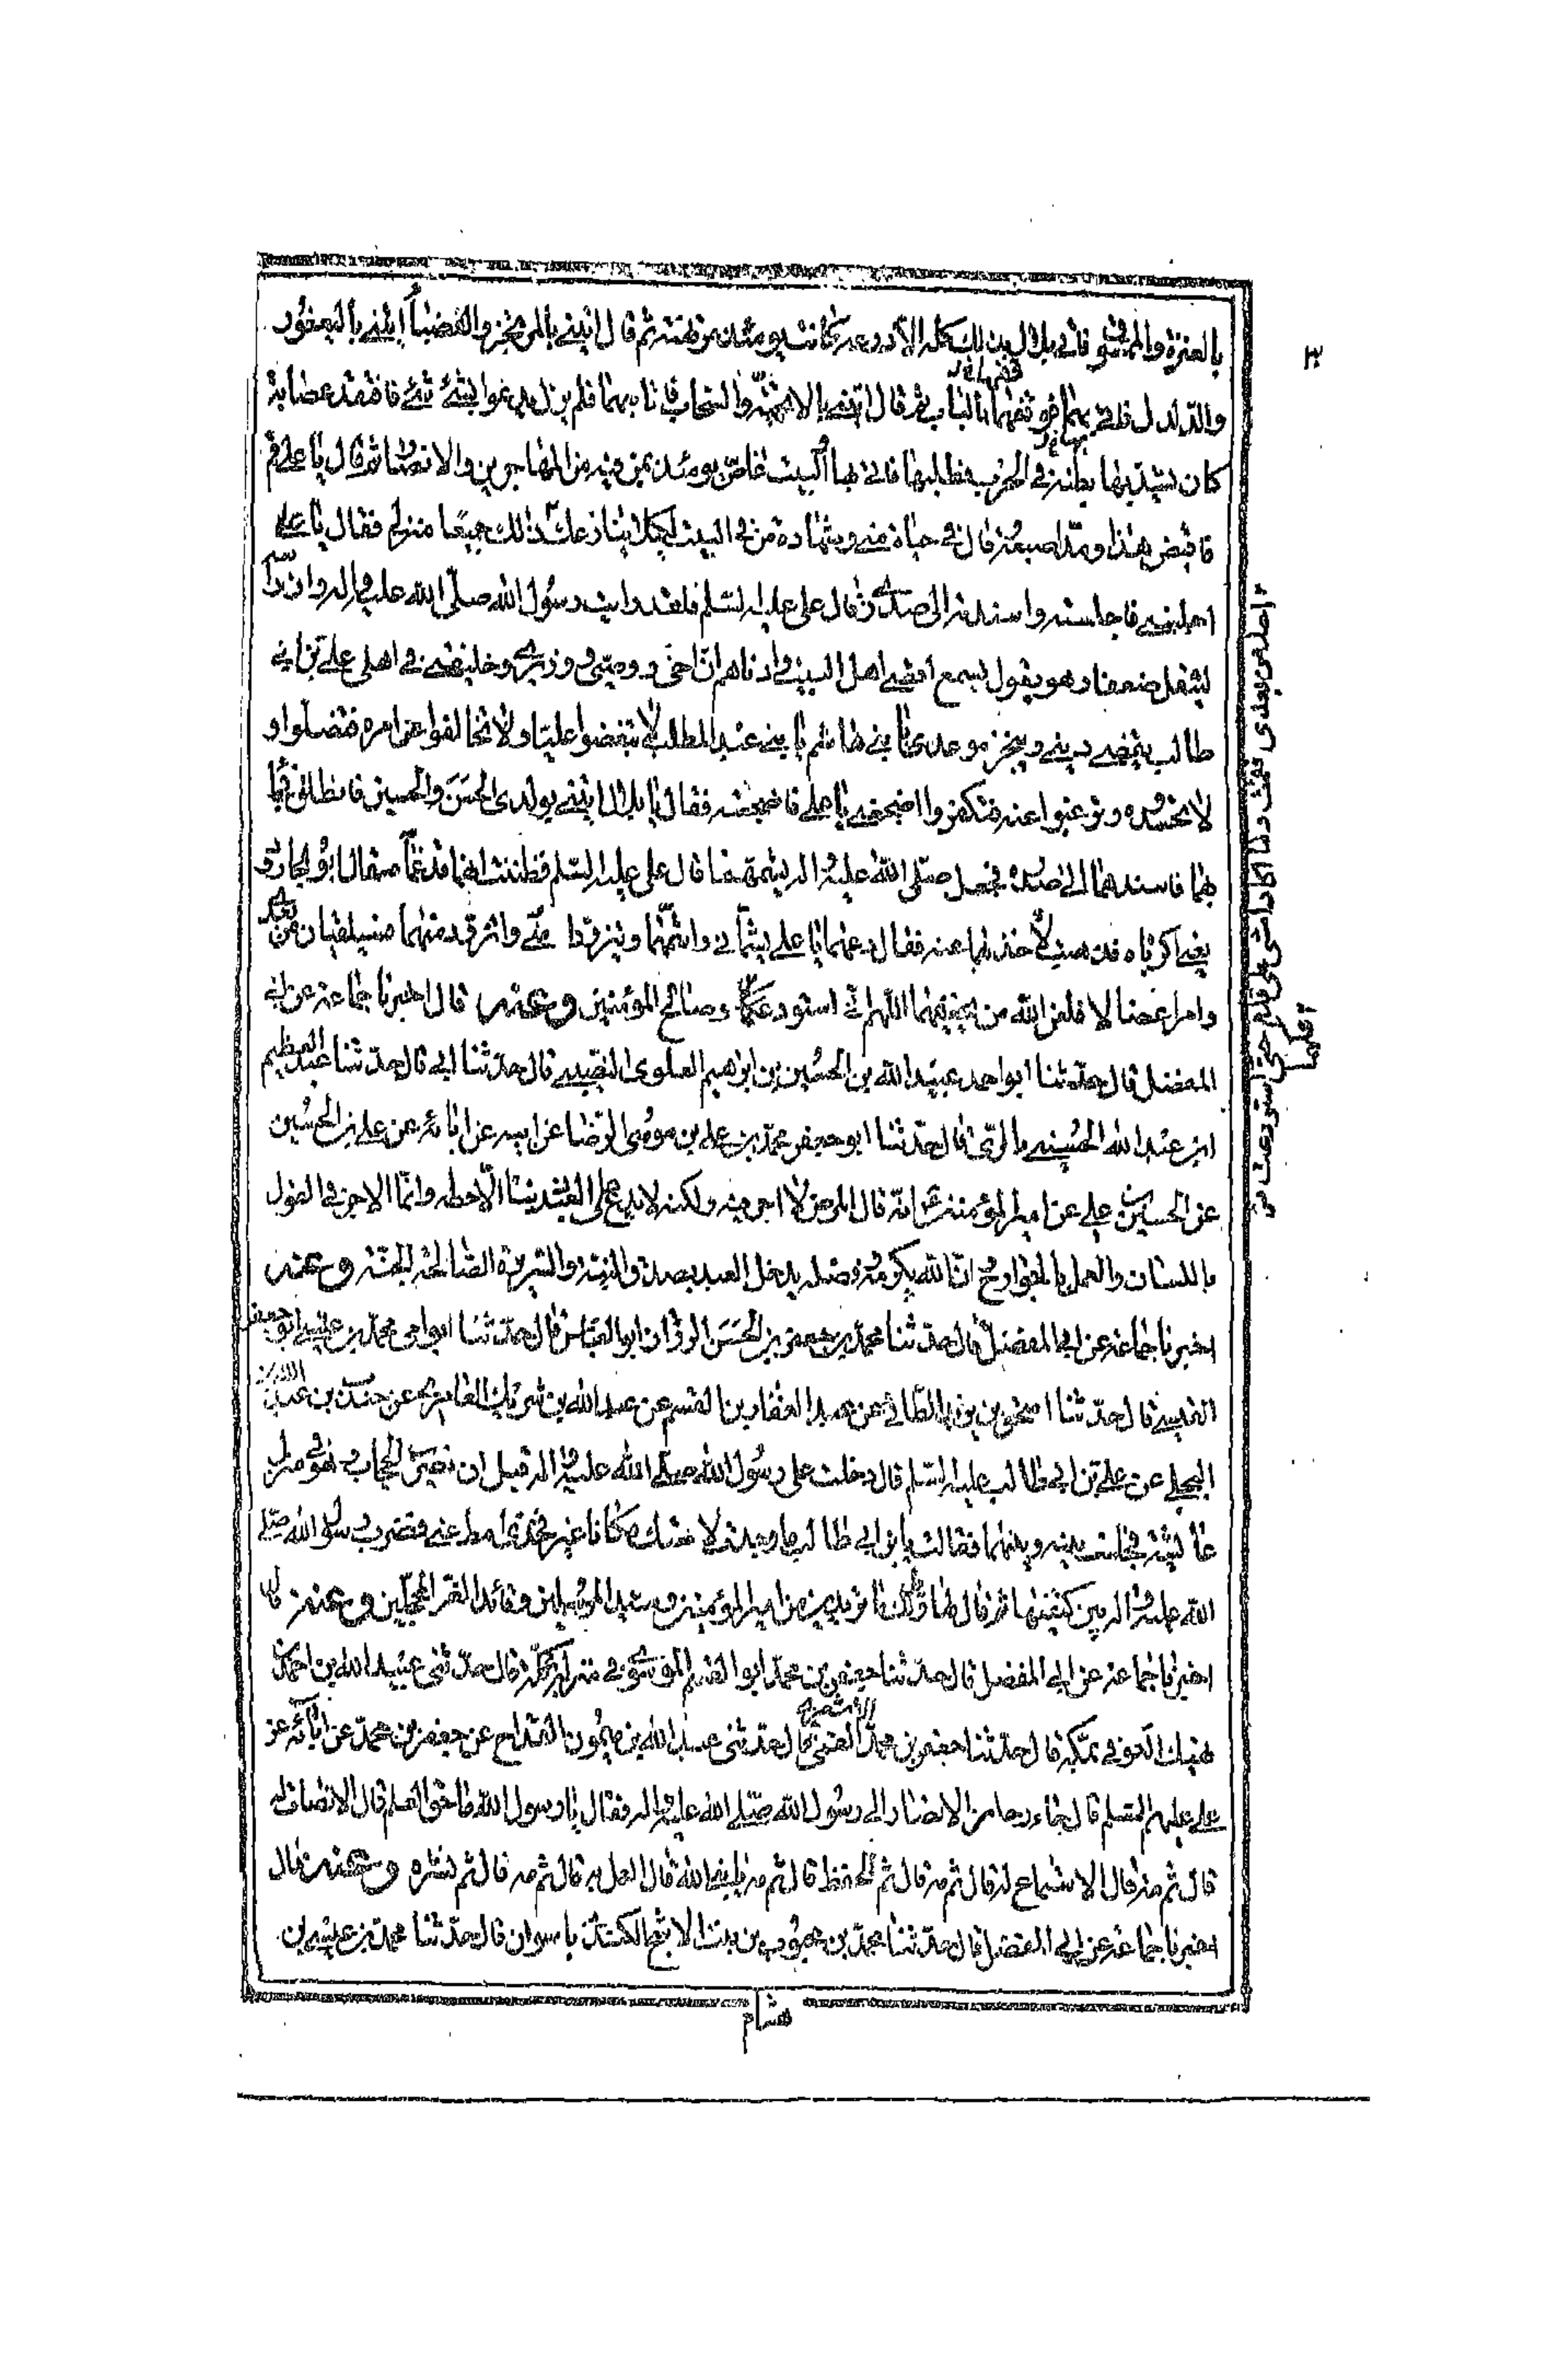 بالعنزة والممشوق فاتى بلال بذلك كله الا درعه كانت يومئذ مرتهنة ثم قال ايتنى بالمرتجز والعضباء ايتنى باليعفور
والدلدل فاتى بهما فوقفهما بالباب ثم قال ايتنى بالاتحمية والسحاب فاتا بهما فلم يزل يدعوا بشئ شئ فافتقد عصابة
كان يشد بها بطنه فى الحرب فطلبها فاتى بها والبيت غاص يومئذ بمن فيه من المهاجرين والانصار ثم قال يا على قم
فاقبض هذا ومد اصبعه وقال فى حياة منى وشهادة من فى البيت لكيلا ينازعك ذلك جميعا منزلى فقال يا على
اجلسنى فاجلسته واسندته الى صدرى قال على عليه السلم فلقد رايت رسول الله صلى الله عليه واله وان راسه
ليثقل ضعفا وهو يقول يسمع اقصى اهل البيت وادناهم ان اخى ووصيى ووزيرى وخليفتى فى اهلى على بن ابى
طالب يقضى دينى وينجز موعدى يا بنى هاشم يا بنى عبد المطلب لا تبغضوا عليا ولا تخالفوا عن امره فتضلوا و
لا تحسدوه وترغبوا عنه فتكفروا اضجعنى يا على فاضجعته فقال يا بلال ايتنى بولدى الحسن والحسين فانطلق فجاء
بهما فاسندهما الى صدره فجعل صلى الله عليه واله يشمهما قال على عليه السلم فظننت انهما قد غماه قال ابو الجارود
يعنى اكرباه فذهبت لاخذهما عنه فقال دعهما يا على يشمانى واشمهما ويتزودا منى واتزود منهما فسيلقيان من بعدى
وامرا عضالا فلعن الله من يخيفهما اللهم انى استودعكهما وصالح المؤمنين وعنه قال اخبرنا جماعة عن ابى
المفضل قال حدثنا ابو احمد عبيد الله بن الحسين بن ابراهيم العلوى النصيبى قال حدثنا ابى قال حدثنا عبد العظيم
ابن عبد الله الحسنى بالرى قال حدثنا ابو جعفر محمد بن على بن موسى الرضا عن ابيه عن ابائه عن على بن الحسين
عن الحسين بن على عن امير المؤمنين انه قال المرض لا اجر فيه ولكنه لا يدع على العبد ذنبا الا حطه وانما الاجر فى القول
باللسان والعمل بالجوارح ان الله بكرمه وفضله يدخل العبد بصدق النية والسريرة الصالحة الجنة وعنه
اخبرنا جماعة عن ابى المفضل قال حدثنا محمد بن جعفر بن الحسن الرزاز ابو العباس قال حدثنا ابو امى محمد بن عيسى ابو جعفر
القيسى قال حدثنا اسحق بن يزيد الطائى عن عبد الغفار بن القسم عن عبد الله بن شريك العامرى عن جندب بن عبد الله
البجلى عن على بن ابى طالب عليه السلم قال دخلت على رسول الله صلى الله عليه واله قبل ان يضرب الحجاب وهو فى منزل
عائشة فجلست بينه وبينها فقالت يا بن ابى طالب ما وجدت لاستك مكانا غير فخذى امط عنى فضرب رسول الله صلى
الله عليه واله بين كتفيها ثم قال لها ويلك ما تريدين من امير المؤمنين وسيد المرسلين وقائد الغر المحجلين وعنه قال
اخبرنا جماعة عن ابى المفضل قال حدثنا جعفر بن محمد ابو القسم الموسوى فى منزله بمكة قال حدثنى عبيد الله بن احمد بن
نهيك الكوفى بمكة قال حدثنا جعفر بن محمد الاشعرى القمى قال حدثنى عبد الله بن ميمون القداح عن جعفر بن محمد عن ابائه عن
على عليهم السلم قال جاء رجل من الانصار الى رسول الله صلى الله عليه واله فقال يا رسول الله ما حق العلم قال الانصات له
قال ثم مه قال الاستماع له قال ثم مه قال ثم الحفظ قال ثم مه يا نبى الله قال العمل به قال ثم مه قال ثم نشره وعنه قال
اخبرنا جماعة عن ابى المفضل قال حدثنا محمد بن محبوب بن بنت الاشج الكندى باسوان قال حدثنا محمد بن عيسى بن
هشام
٣